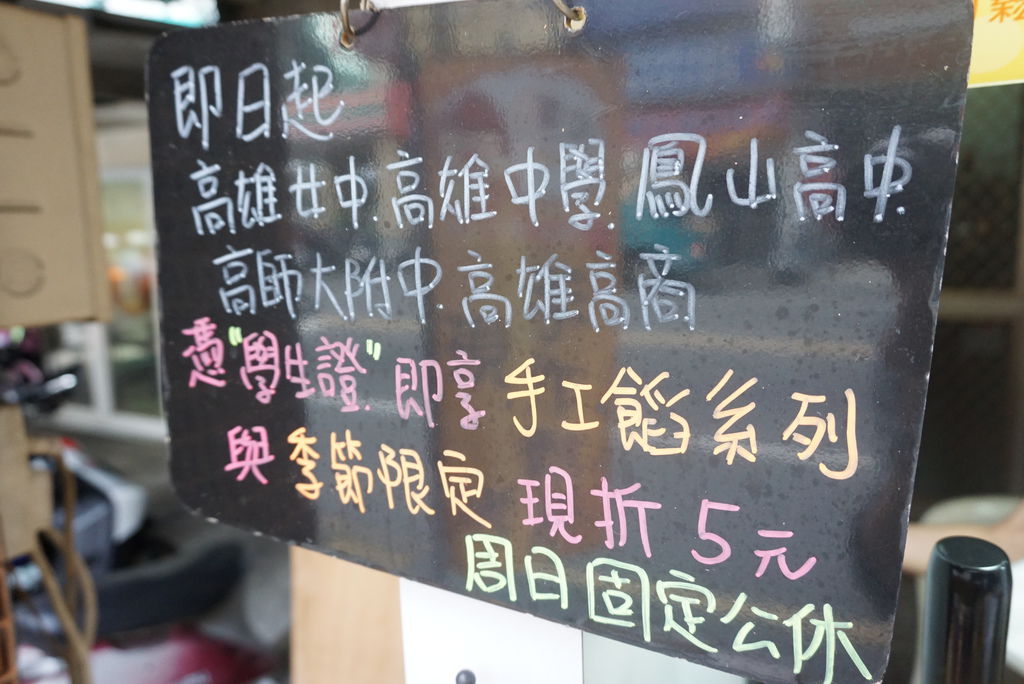 即日起
高雄女中.高雄中學.鳳山高中.
高師大附中.高雄高商
憑"學生證".即享手工餡系列
與季節限定現折5元
周日固定公休